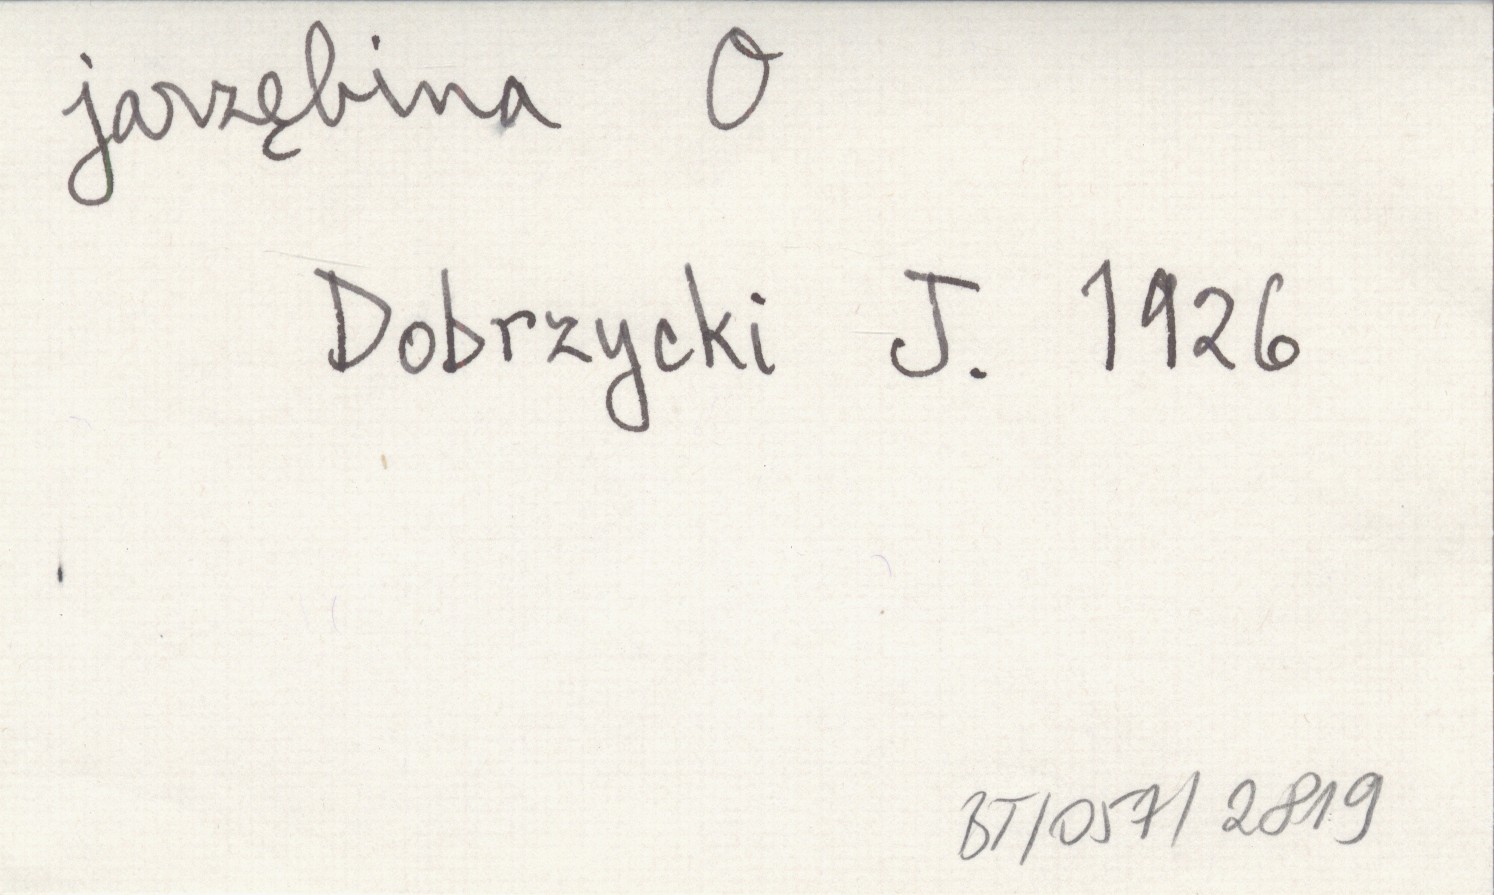 jarzębina O
Dobrzycki J. 1926
BT/057/2819